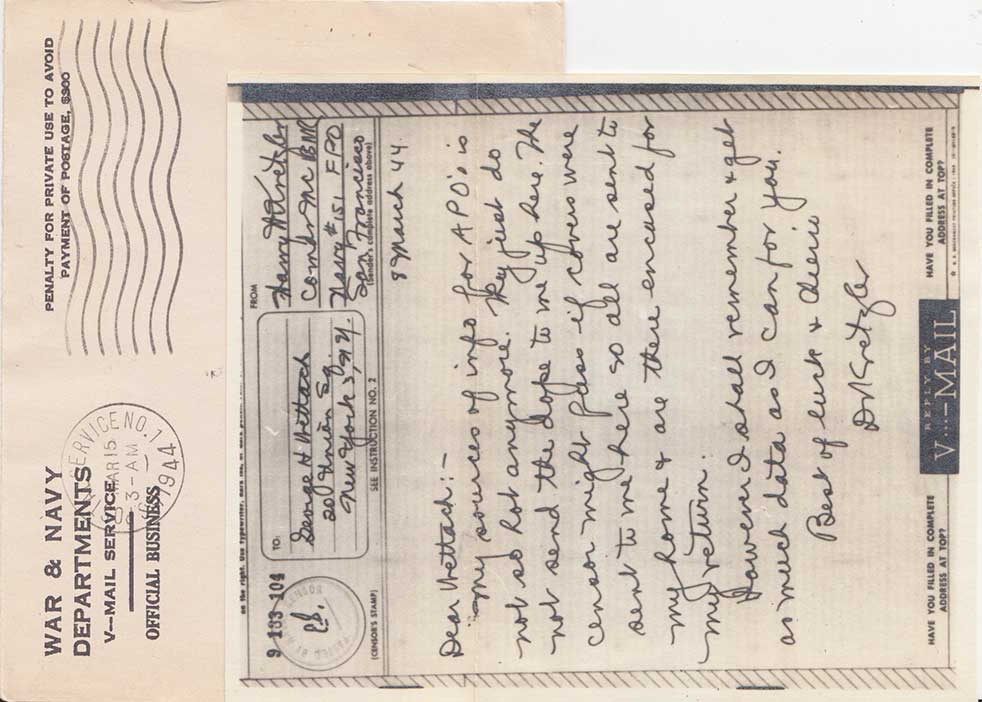 WAR & NAVY
DEPARTMENTS
V—MAIL SERVICE
OFFICIAL BUSINESS
SERVICE NO. 1
MAR 15
3-AM
1944
PENALTY FOR PRIVATE USE TO AVOID
PAYMENT OF POSTAGE, $300
9 183 104
PASSED BY CENSOR
(CENSOR'S STAMP)
TO:
George H Wettach
201 Union Sq.
New York 3, N.Y.
SEE INSTRUCTION NO. 2
FROM
Harry Kretzler
Navy # 151 FPO
San Francisco
(Sender's complete address above)
8 March 44.
Dear Wettach:-
my sources of info for APO's is
not so hot anymore. They just do
not send the dope to me up here. The
censor might pass it if covers were
sent to me here so all are sent to
my home & are there encased for
my return.
However I shall remember & get
as much data as I can for you.
Best of luck &
Kretzler
HAVE YOU FILLED IN COMPLETE
ADDRESS AT TOP?
REPLY BY
V···—MAIL
HAVE YOU FILLED IN COMPLETE
ADDRESS AT TOP?